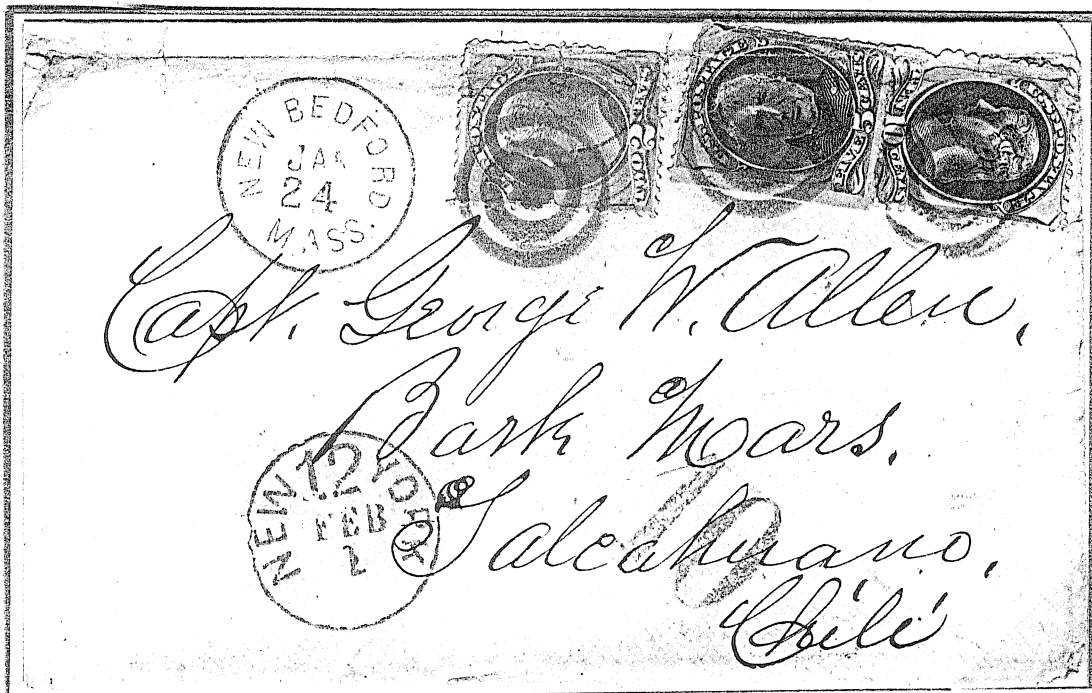 NEW BEDFORD
JAN
24
MASS.
U.S. POSTAGE
Capt. George W. Allen,
Bark Mars.
Talcahuano,
Chili
NEW YORK
12
FEB
10